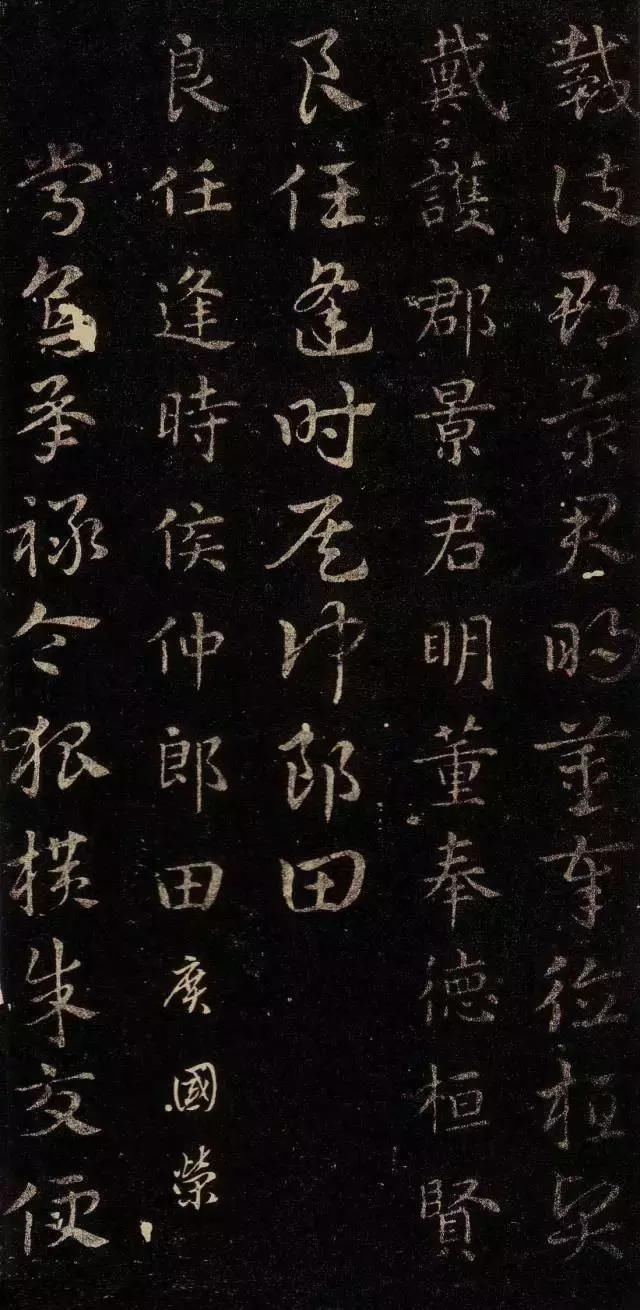 戴護郡景君明董奉德桓賢
戴護郡景君明董奉德桓賢
良任逢時侯仲郎田
良任逢時侯仲郎田廣國榮
常烏承祿令狐橫朱交便